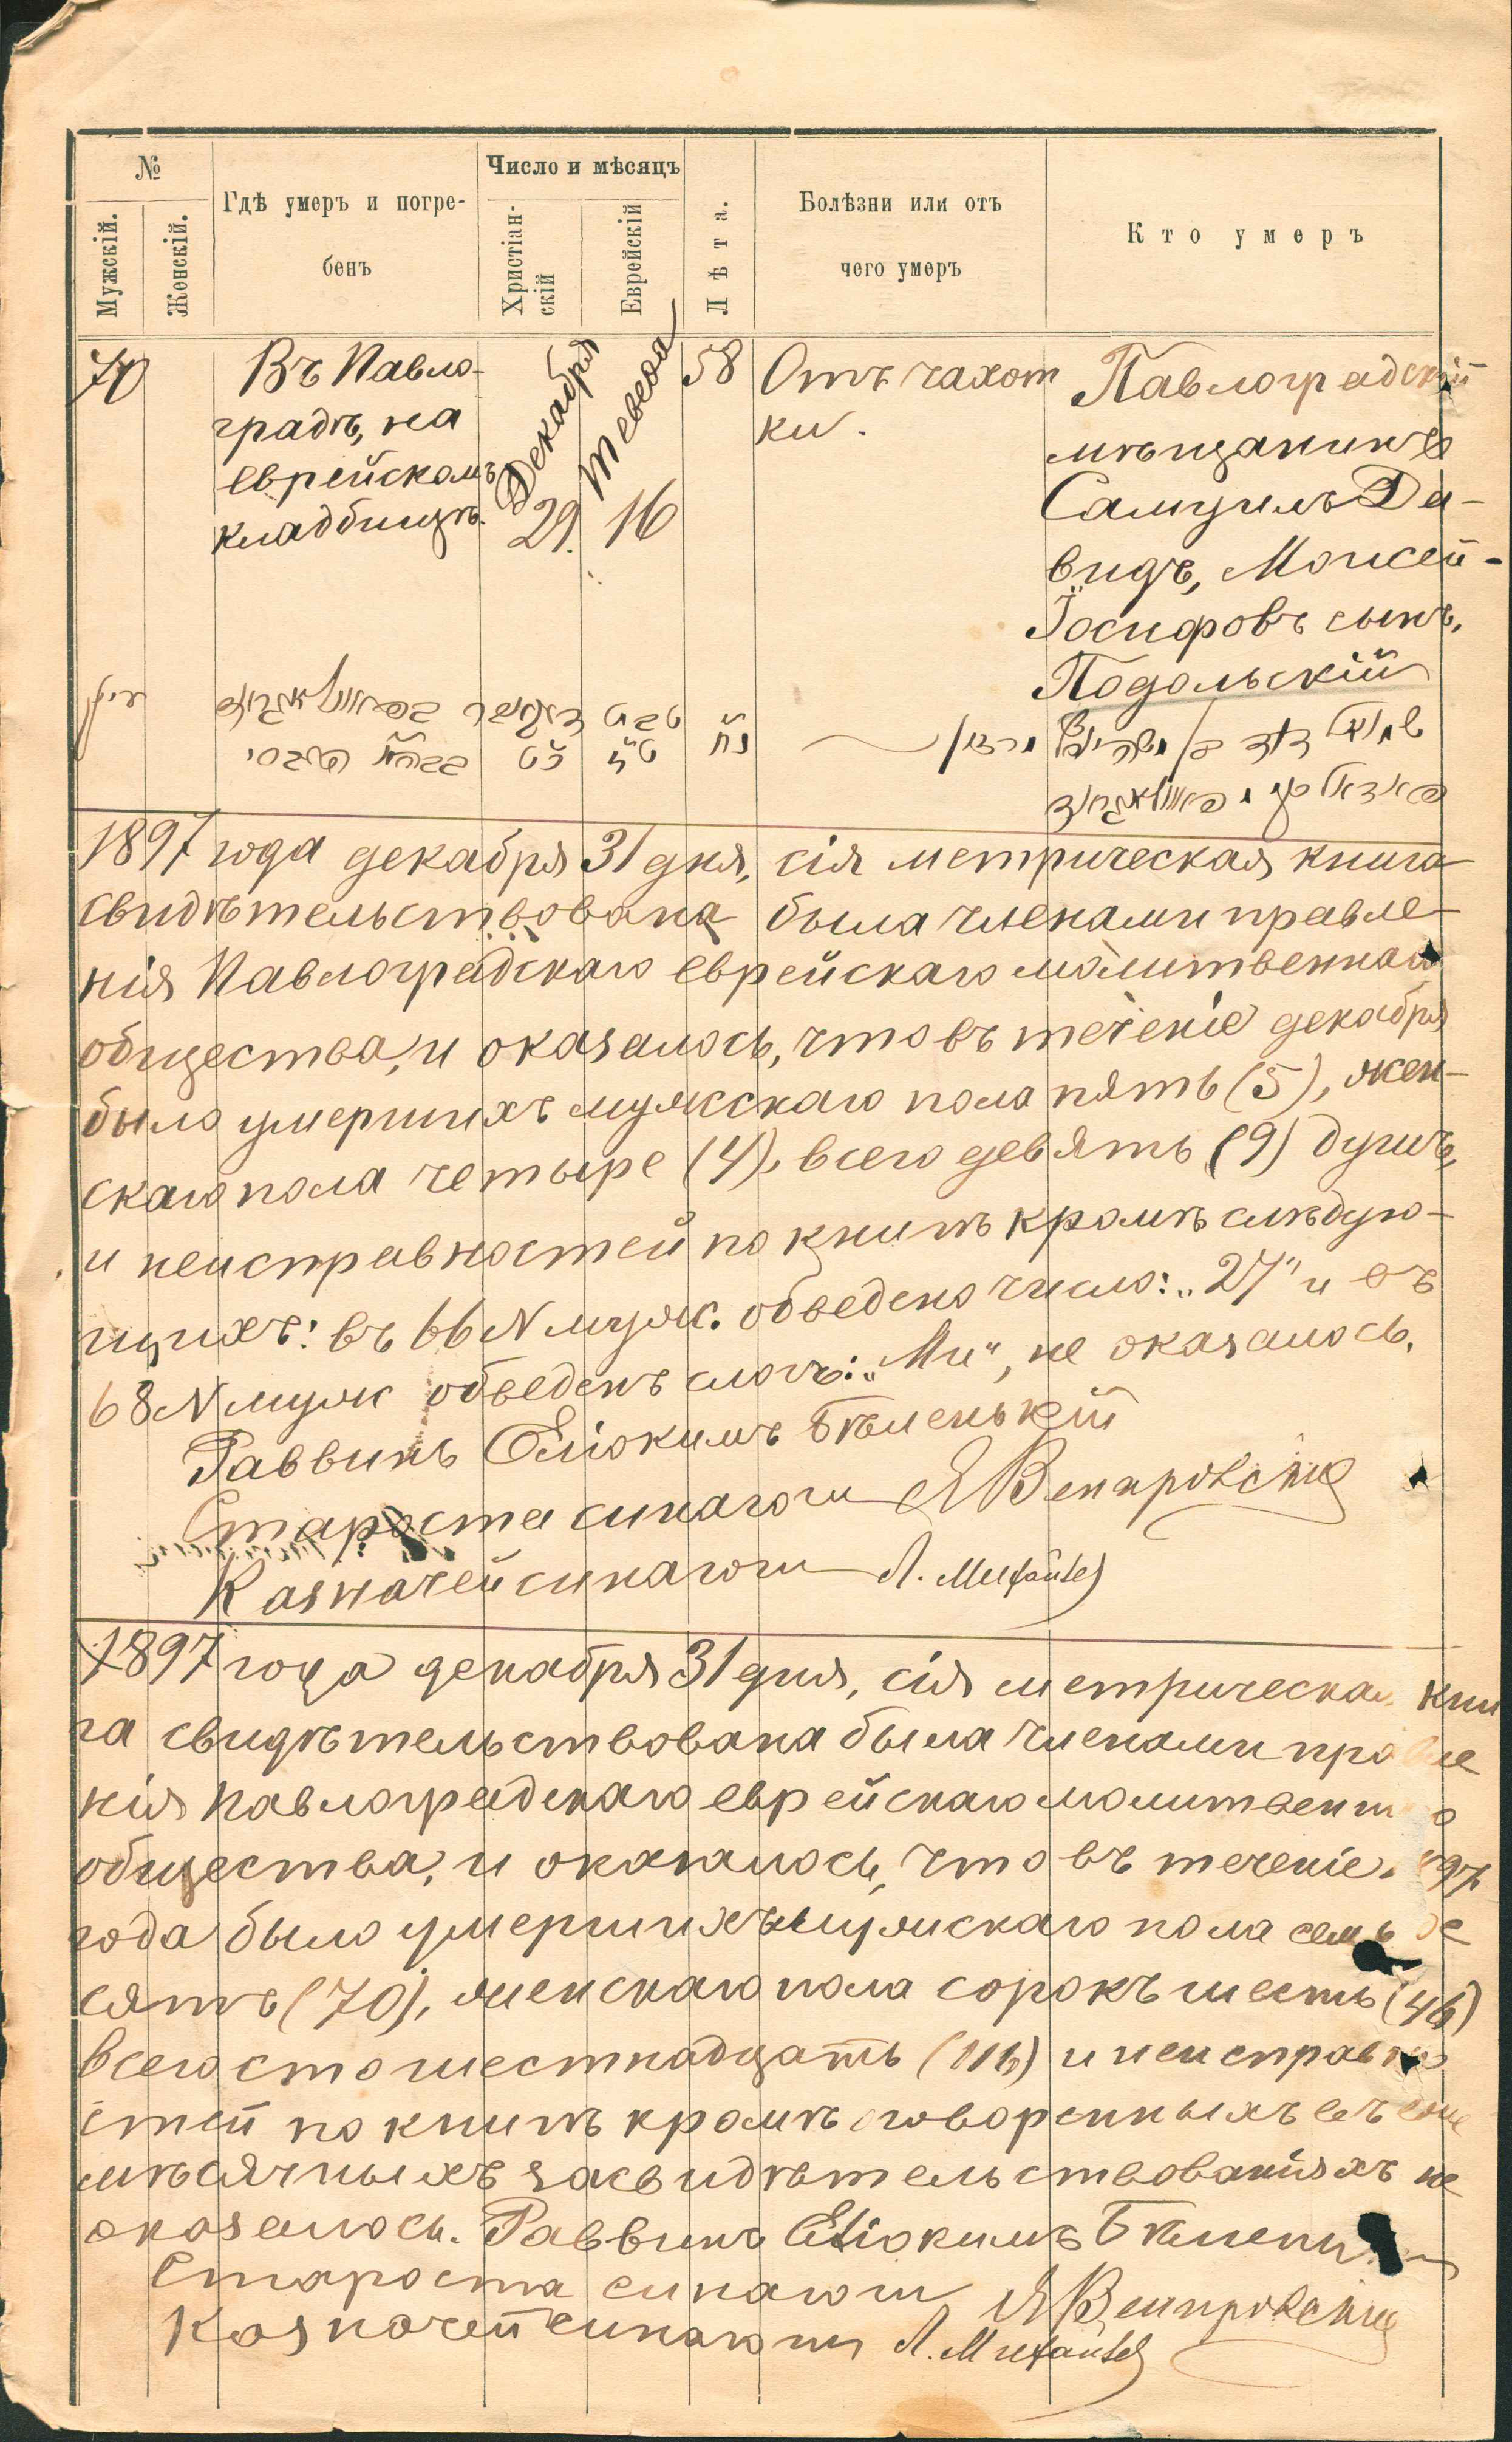 №
Число и мѣсяцъ
Мужскій.
Женскій.
Гдѣ умеръ и погре-
бенъ
Христіан-
скій
Еврейскій
Лѣта.
Болѣзни или отъ
чего умеръ
Кто умеръ
70
Въ Павло-
градѣ, на
еврейскомъ
кладбищѣ.
Декабря
29.
Тевеса
16
58
Отъ чахот
ки.
Павлоградскій
мѣщанинъ
Самуилъ Да-
видъ, Моисей-
Іосифовъ сынъ,
Подольскій
1897 года декабря 31 дня, сія метрическая книга
свидѣтельствована была членами правле-
нія Павлоградскаго еврейскаго молитвеннаго
общества, и оказалось, что въ теченіе декабря
было умершихъ мужскаго пола пять (5), жен-
скаго пола четыре (4), всего девять (9) душъ,
и неисправностей по книгѣ кромѣ слѣдую-
щихъ: въ 66 N муж. обведено число: „27" и въ
68 N муж обведенъ слогъ: „Ми", не оказалось.
Раввинъ Еліокимъ Бѣленькій
Староста синагоги
Казначей синагоги
1897 года декабря 31 дня, сія метрическая кни
га свидѣтельствована была членами правле
нія Павлоградскаго еврейскаго молитвеннаго
общества, и оказалось, что въ теченіе 1897
года было умершихъ мужскаго пола семьде
сятъ (70), женскаго пола сорокъ шесть (46)
всего сто шестнадцать (116) и неисправно
стей по книгѣ кромѣ оговоренныхъ въ еже
мѣсячныхъ засвидѣтельствованіяхъ не
оказалось. Раввинъ Еліокимъ Бѣленькій
Староста синагоги
Казначей синагоги